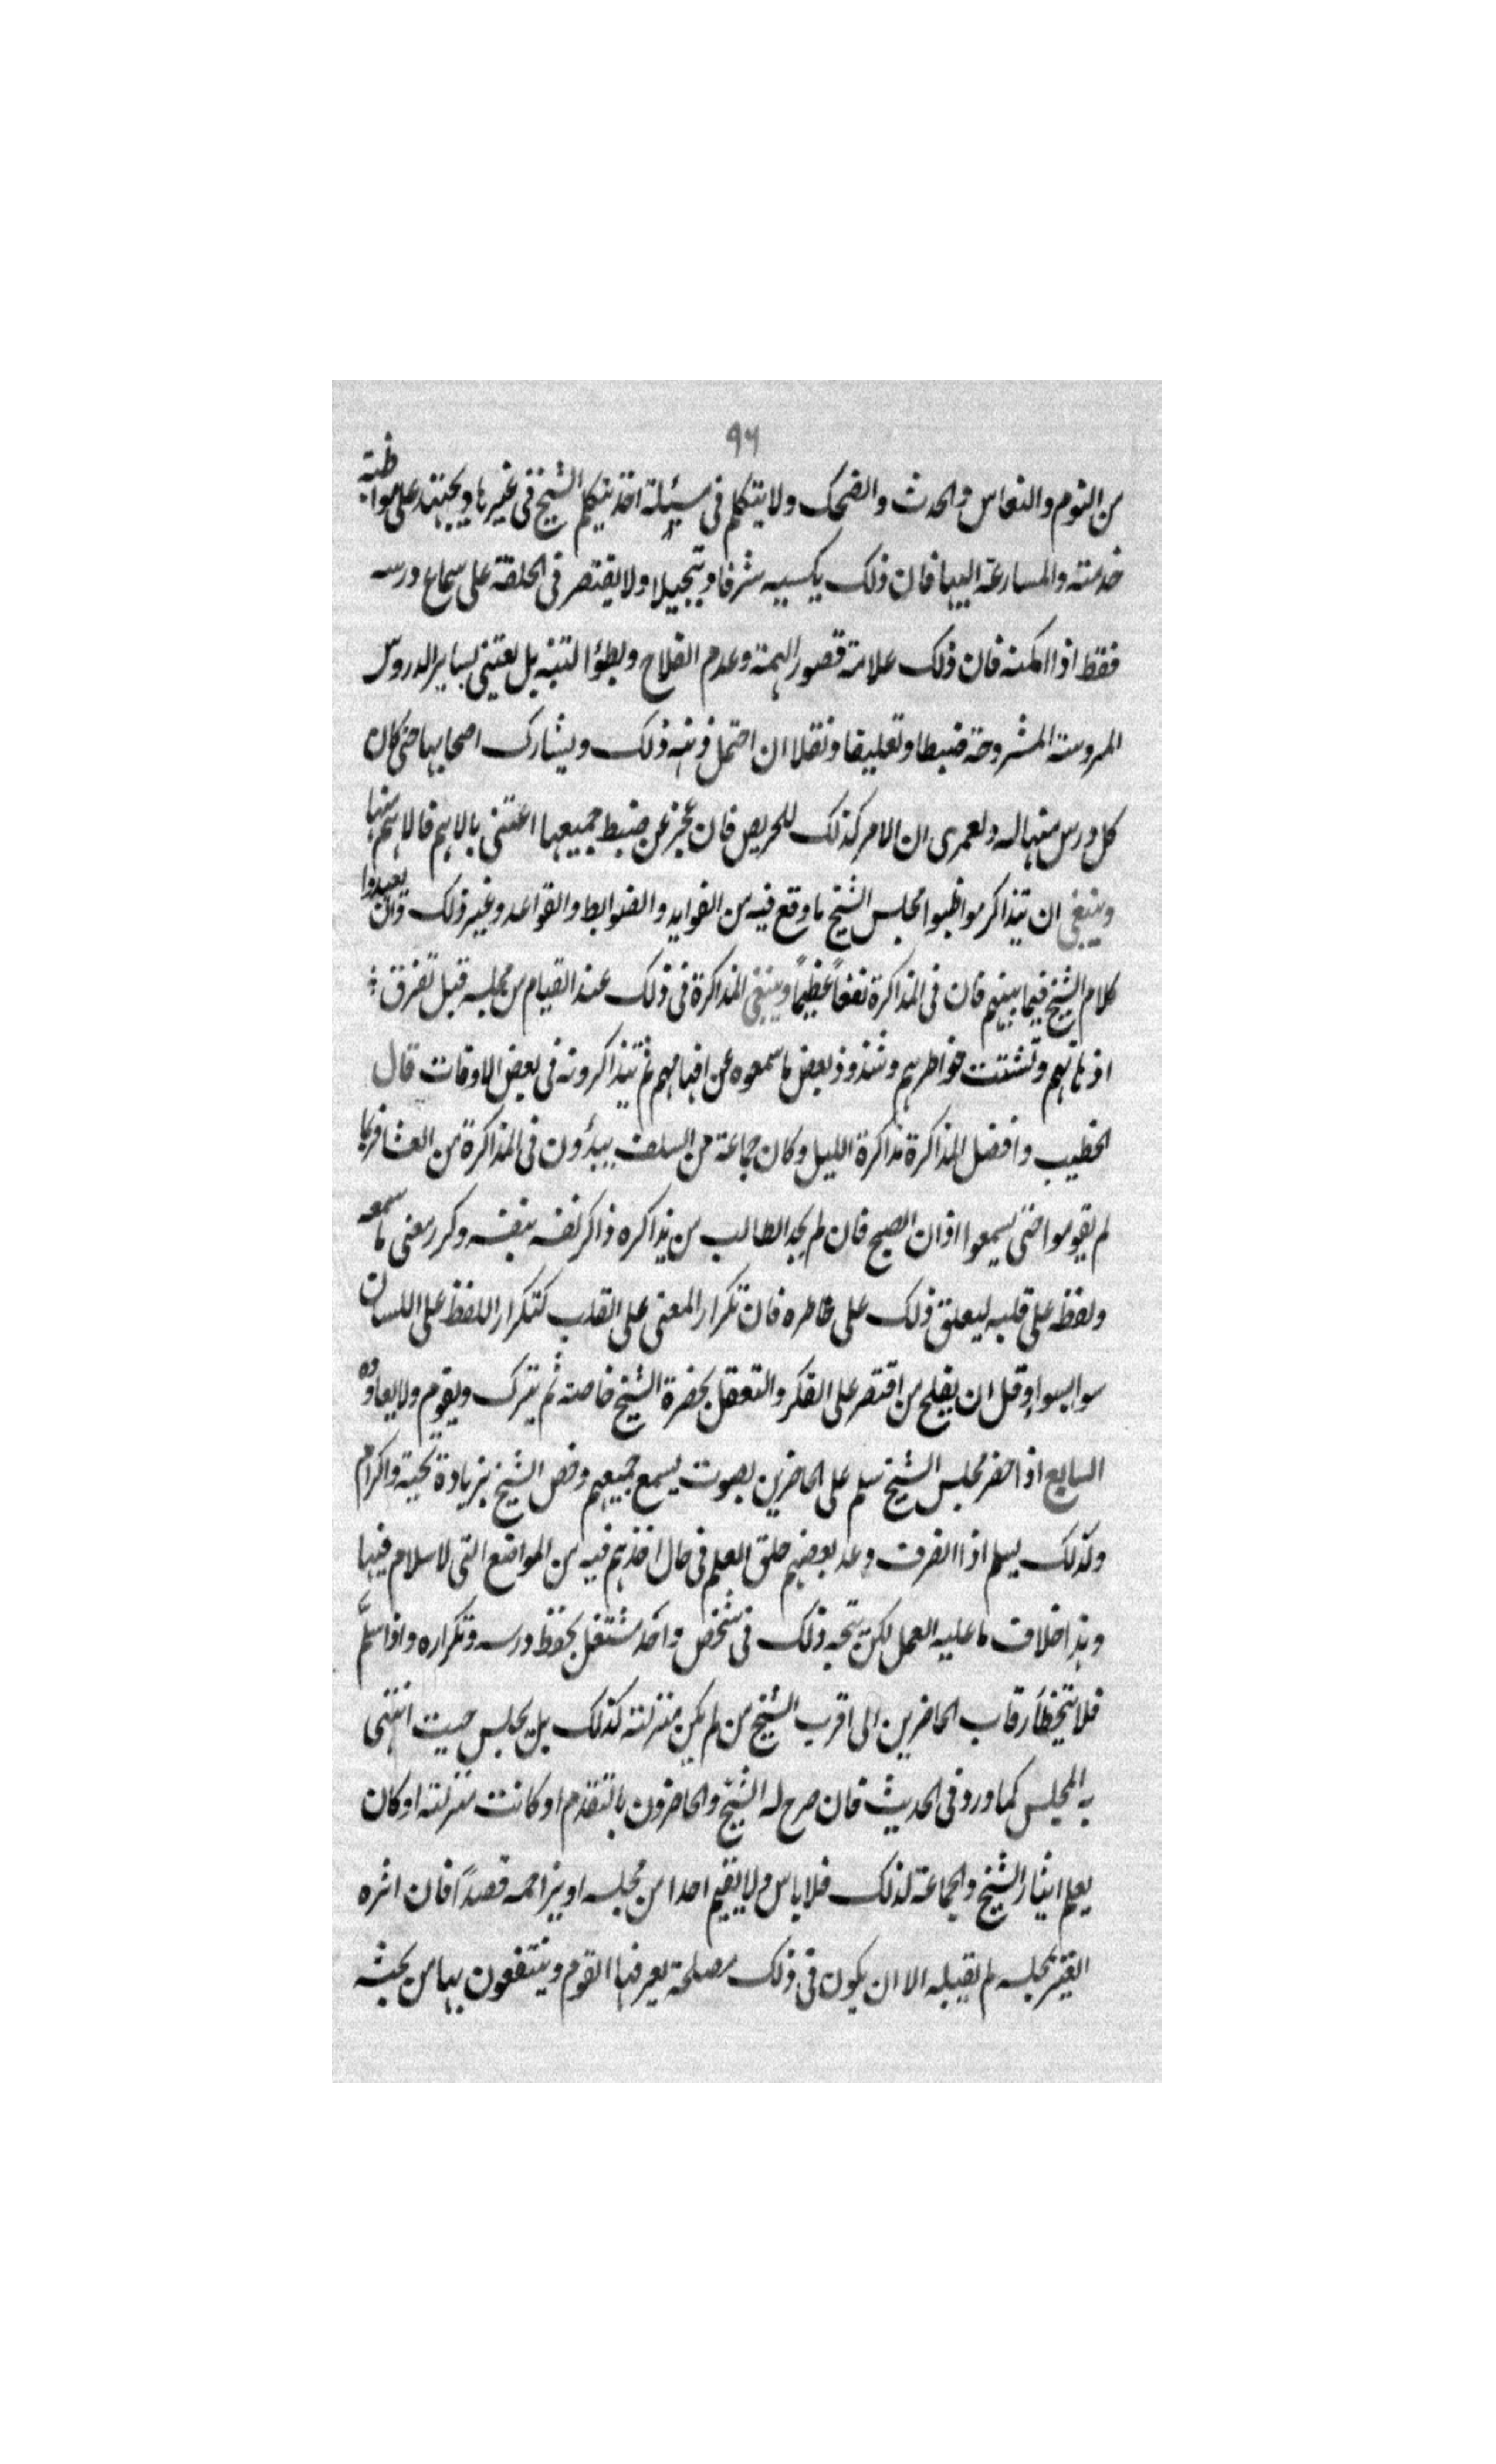 ٩٦
من النوم والنعاس والحدث والضحك ولا يتكلم فى مسئلة اخذ يتكلم الشيخ فى غيرها ويجتهد على مواظبة
خدمته والمسارعة اليها فان ذلك يكسبه شرفا وتبجيلا ولا يقتصر فى الحلقة على سماع درسه
فقط اذا امكنه فان ذلك علامة قصور الهمة وعدم الفلاح وبطؤ التنبه بل يعتنى بساير الدروس
المروسة المشروحة ضبطا وتعليقا ونقلا ان احتمل ذهنه ذلك ويشارك اصحابها حتى كان
كل درس منها له ولعمرى ان الامر كذلك للحريص فان عجز عن ضبط جميعها اعتنى بالاهم فالاهم منها
وينبغى ان يتذاكر مواظبوا مجلس الشيخ ما وقع فيه من الفوايد والضوابط والقواعد وغير ذلك وان يعيدوا
كلام الشيخ فيما بينهم فان فى المذاكرة نفعًا عظيمًا وينبغى المذاكرة فى ذلك عند القيام من مجلسه قبل تفرق
اذهانهم وتشتت خواطرهم وشذوذ بعض ما سمعوه عن افهامهم ثم يتذاكرونه فى بعض الاوقات قال
الخطيب وافضل المذاكرة مذاكرة الليل وكان جماعة من السلف يبدؤون فى المذاكرة من العشا فربما
لم يقوموا حتى يسمعوا اذان الصبح فان لم يجد الطالب من يذاكره ذاكر نفسه بنفسه وكرر معنى ما سمعه
ولفظه على قلبه ليعلق ذلك على خاطره فان تكرار المعنى على القلب كتكرار اللفظ على اللسان
سوا بسوا وقل ان يفلح من اقتصر على الفكر والتعقل بحضرة الشيخ خاصة ثم يترك ويقوم ولا يعاوده
السابع اذا حضر مجلس الشيخ سلم على الحاضرين بصوت يسمع جميعهم وخص الشيخ بزيادة تحية واكرام
وكذلك يسلم اذا انصرف وعد بعضهم حلق العلم فى حال اخذهم فيه من المواضع التى لا سلام فيها
وهذا خلاف ما عليه العمل لكن يتجه ذلك فى شخص واحد مشتغل بحفظ درسه وتكراره واذا سلّم
فلا يتخطأ رقاب الحاضرين الى اقرب الشيخ من لم يكن منزلته كذلك بل يجلس حيث انتهى
به المجلس كما ورد فى الحديث فان صرح له الشيخ والحاضرون بالتقدم او كانت منزلته او كان
يعلم ايثار الشيخ والجماعة لذلك فلا باس ولا يقيم احدا من مجلسه او يزاحمه قصدًا فان اثره
الغير بمجلسه لم يقبله الا ان يكون فى ذلك مصلحة يعرفها القوم وينتفعون بها من بحثه